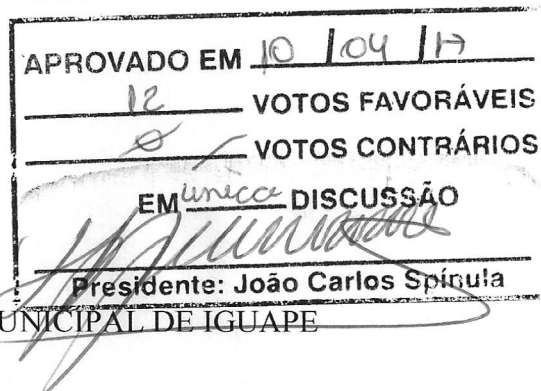 APROVADO EM 10 / 04 / 17
12 VOTOS FAVORÁVEIS
0 VOTOS CONTRÁRIOS
EM única DISCUSSÃO
Presidente: João Carlos Spínula
UNICIPAL DE IGUAPE